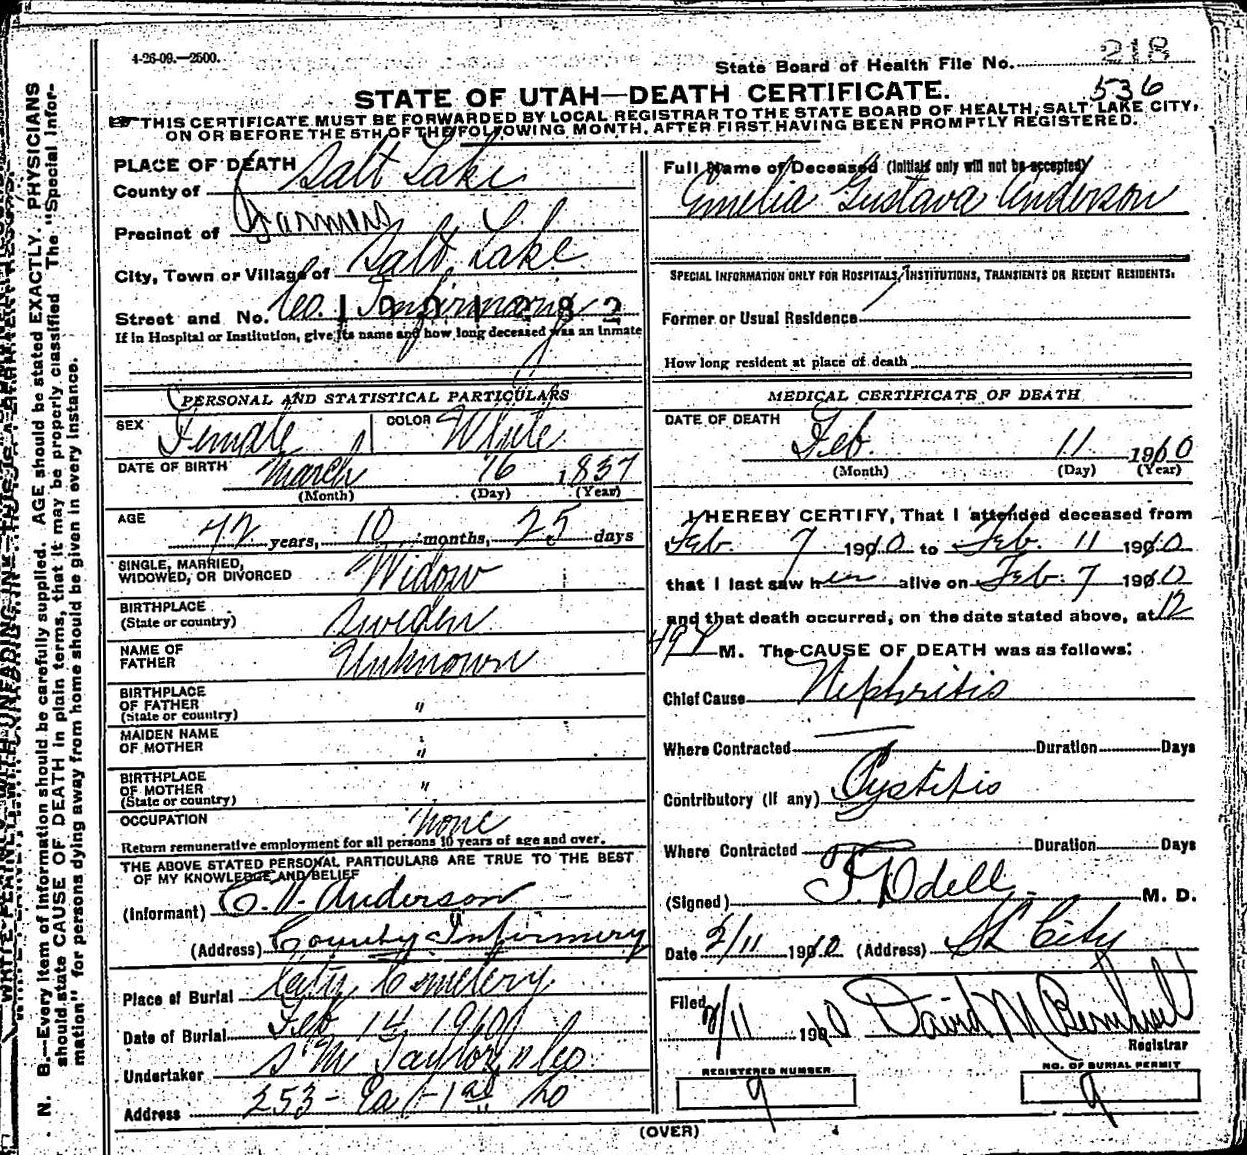 4-26-09.—2500.
218
State Board of Health File No.
536
STATE OF UTAH—DEATH CERTIFICATE.
THIS CERTIFICATE MUST BE FORWARDED BY LOCAL REGISTRAR TO THE STATE BOARD OF HEALTH, SALT LAKE CITY,
ON OR BEFORE THE 5TH OF THE FOLLOWING MONTH, AFTER FIRST HAVING BEEN PROMPTLY REGISTERED.
PLACE OF DEATH
County of Salt Lake
Precinct of Farmers
City, Town or Village of Salt Lake
Street and No. Co. Infirmary
If in Hospital or Institution, give its name and how long deceased was an inmate
PERSONAL AND STATISTICAL PARTICULARS
SEX Female COLOR White
DATE OF BIRTH March 16 1837
(Month) (Day) (Year)
AGE 72 years, 10 months, 25 days
SINGLE, MARRIED,
WIDOWED, OR DIVORCED Widow
BIRTHPLACE
(State or country) Sweden
NAME OF
FATHER Unknown
BIRTHPLACE
OF FATHER
(State or country) "
MAIDEN NAME
OF MOTHER "
BIRTHPLACE
OF MOTHER
(State or country) "
OCCUPATION None
Return remunerative employment for all persons 10 years of age and over.
THE ABOVE STATED PERSONAL PARTICULARS ARE TRUE TO THE BEST
OF MY KNOWLEDGE AND BELIEF
(Informant) C. A. Anderson
(Address) County Infirmery
Place of Burial City Cemetery
Date of Burial Feb 14 1910
Undertaker S M Taylor & Co
Address 253- East 1st So
Full Name of Deceased (Initials only will not be accepted)
Emelia Gustava Anderson
SPECIAL INFORMATION ONLY FOR HOSPITALS, INSTITUTIONS, TRANSIENTS OR RECENT RESIDENTS.
Former or Usual Residence
How long resident at place of death
MEDICAL CERTIFICATE OF DEATH
DATE OF DEATH Feb. 11 1910
(Month) (Day) (Year)
I HEREBY CERTIFY, That I attended deceased from
Feb. 7 1910 to Feb. 11 1910
that I last saw her alive on Feb. 7 1910
and that death occurred, on the date stated above, at 12
M. The CAUSE OF DEATH was as follows:
Chief Cause Nephritis
Where Contracted Duration Days
Contributory (If any) Cystitis
Where Contracted Duration Days
(Signed) F. Odell M. D.
Date 2/11 1910 (Address) SL City
Filed 2/11 1910 David M
Registrar
REGISTERED NUMBER
9
NO. OF BURIAL PERMIT
9
(OVER)
N. B.—Every item of information should be carefully supplied. AGE should be stated EXACTLY. PHYSICIANS
should state CAUSE OF DEATH in plain terms, that it may be properly classified. The "Special Infor-
mation" for persons dying away from home should be given in every instance.